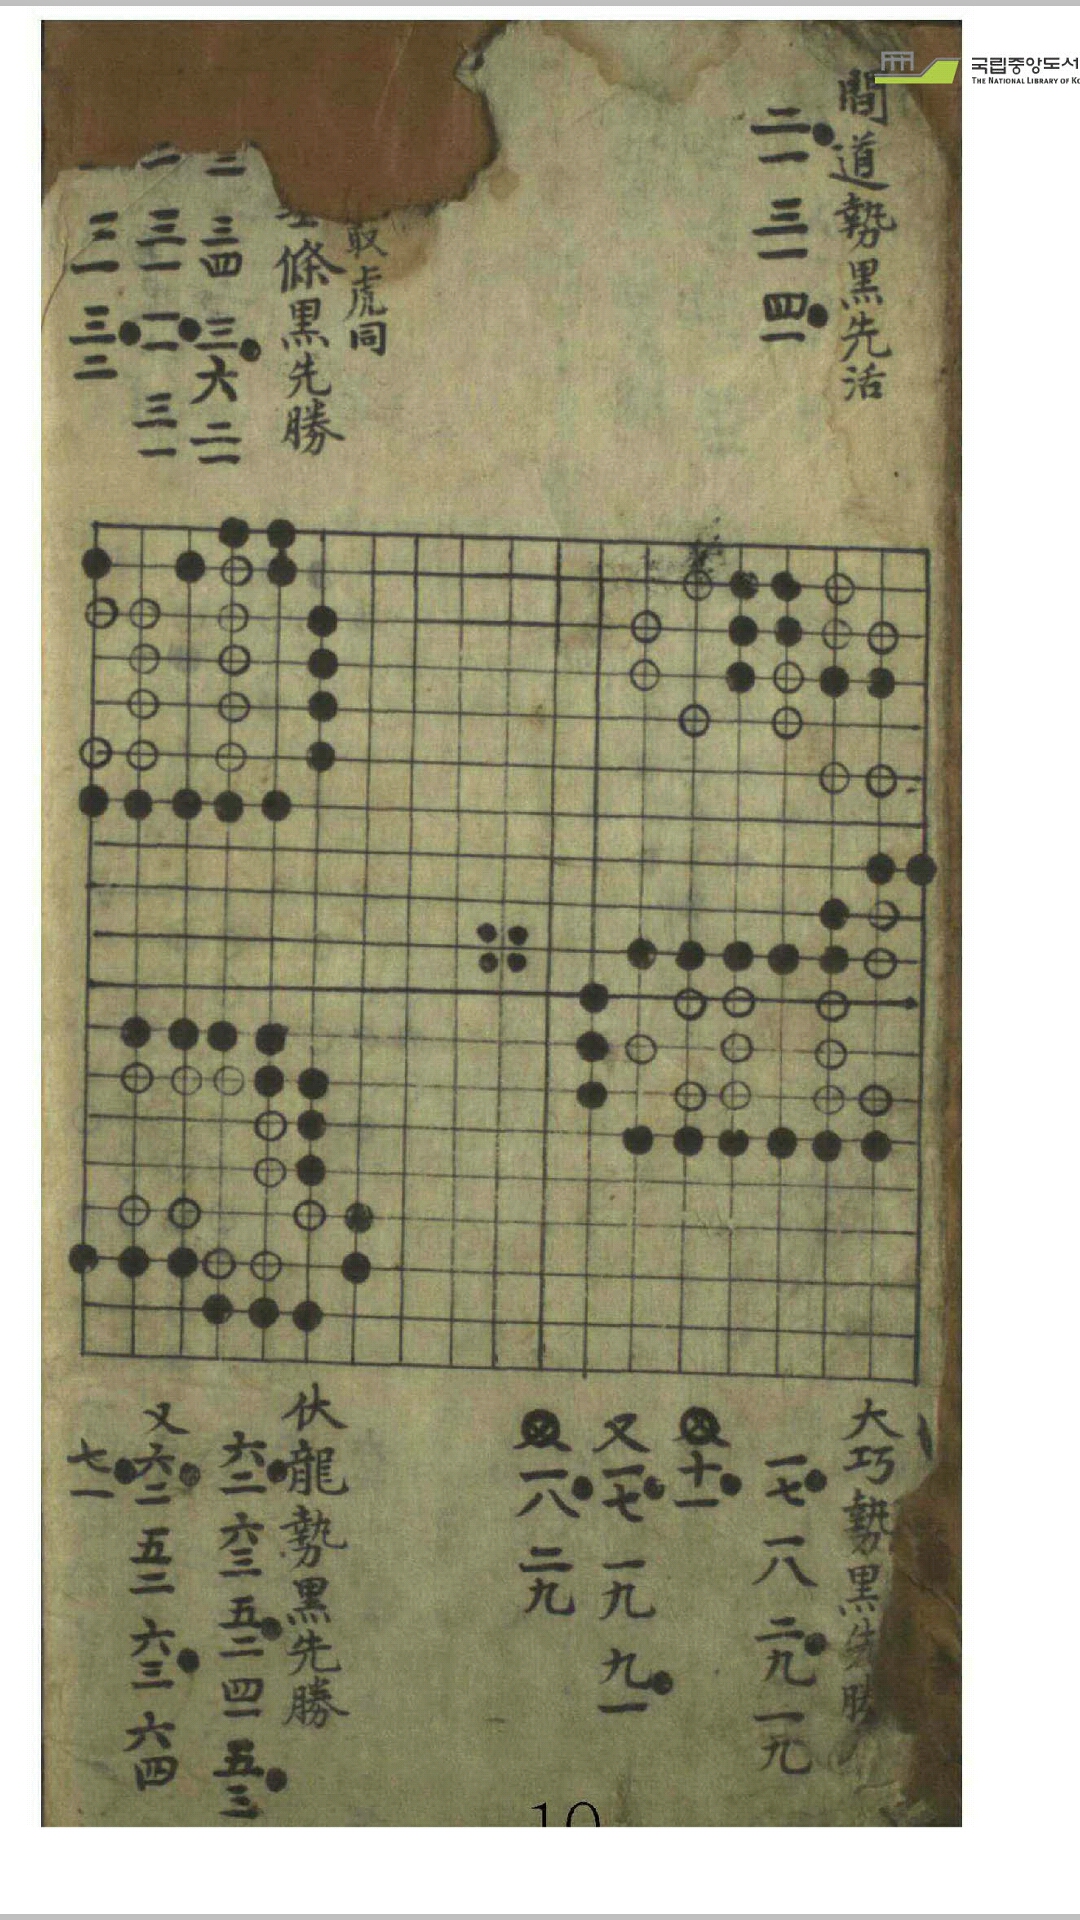 국립중앙도서
THE NATIONAL LIBRARY OF KO
間道勢黒先活
二一 三一 四一
取虎同
條黒先勝
三 三四 三六 二一
二 三一 一一 三一
三一 三二
大巧勢黒先勝
一七 一八 二九 一九
十一
又一七 一九 九一
一八 二九
伏龍勢黒先勝
六二 六三 五二 四一 五三
又六二 五二 六三 六四
七一
10